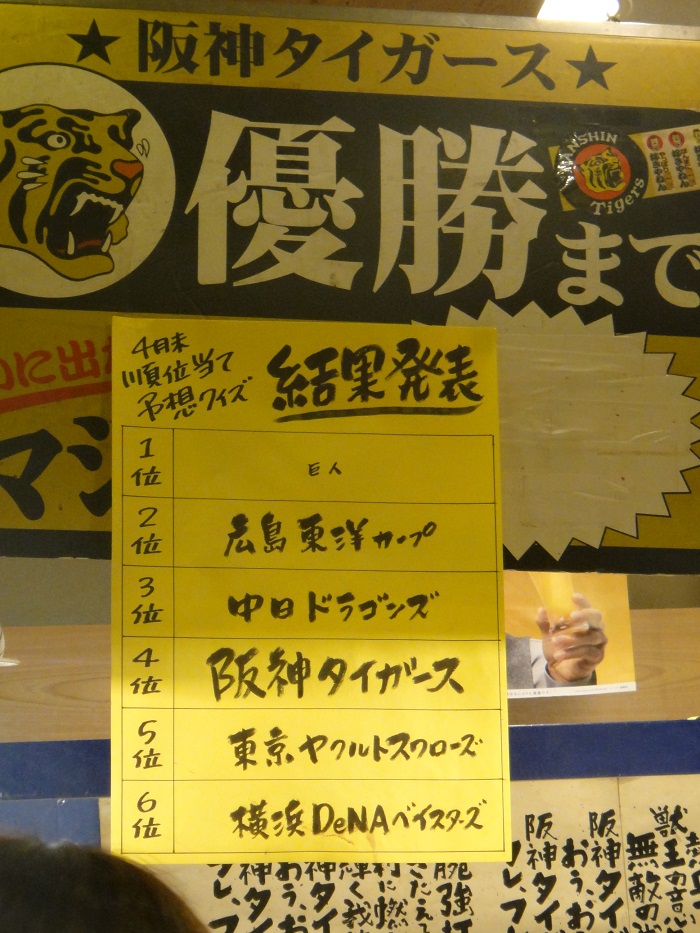 ★阪神タイガース★
優勝まで
HANSHIN
Tigers
に出
マジ
4月末
順位当て
予想クイズ
結果発表
1位 巨人
2位 広島東洋カープ
3位 中日ドラゴンズ
4位 阪神タイガース
5位 東京ヤクルトスワローズ
6位 横浜DeNAベイスターズ
獣王の意
無敵の
阪神タイ
おう、お
阪神タイ
フレ、フ
腕強打